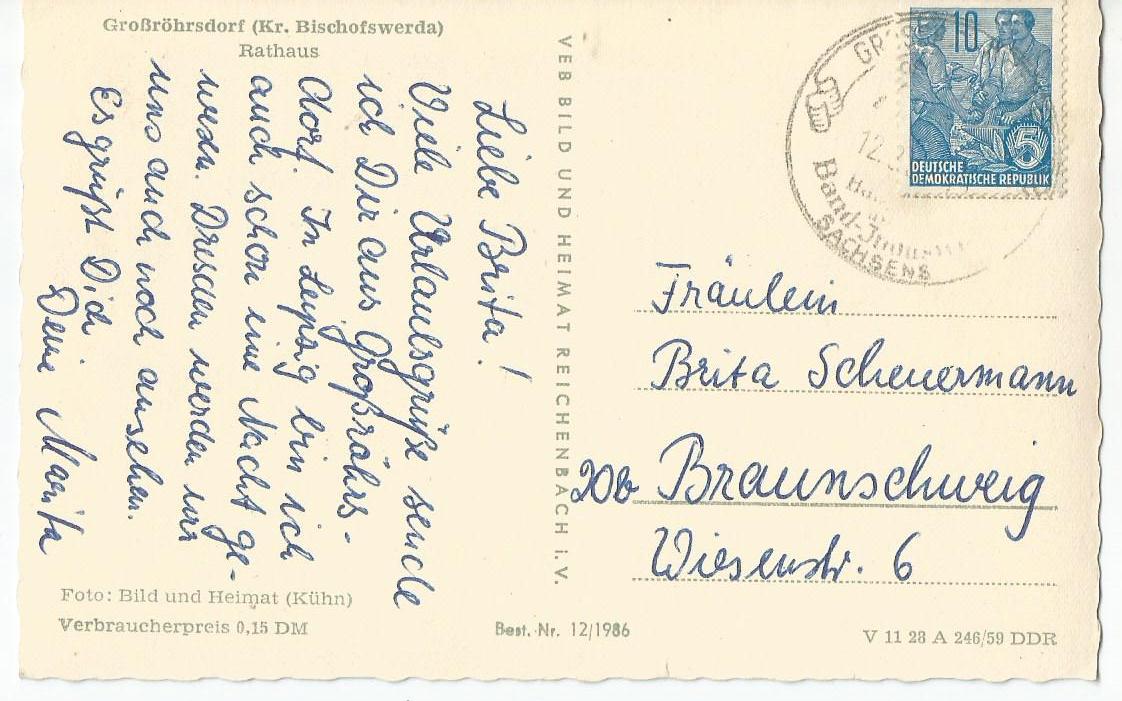 Großröhrsdorf (Kr. Bischofswerda)
Rathaus
Liebe Brita!
Viele Urlaubsgrüße sende
ich Dir aus Großröhrs-
dorf. In Leipzig bin ich
auch schon eine Nacht ge-
wesen. Dresden werden wir
uns auch noch ansehen.
Es grüßt Dich
Deine Marita
Foto: Bild und Heimat (Kühn)
Verbraucherpreis 0,15 DM
VEB BILD UND HEIMAT REICHENBACH i. V.
Best. Nr. 12/1986
10
5
DEUTSCHE
DEMOKRATISCHE REPUBLIK
12.
Band-Industrie
SACHSENS
Fräulein
Brita Scheuermann
20b Braunschweig
Wiesenstr. 6
V 11 28 A 246/59 DDR